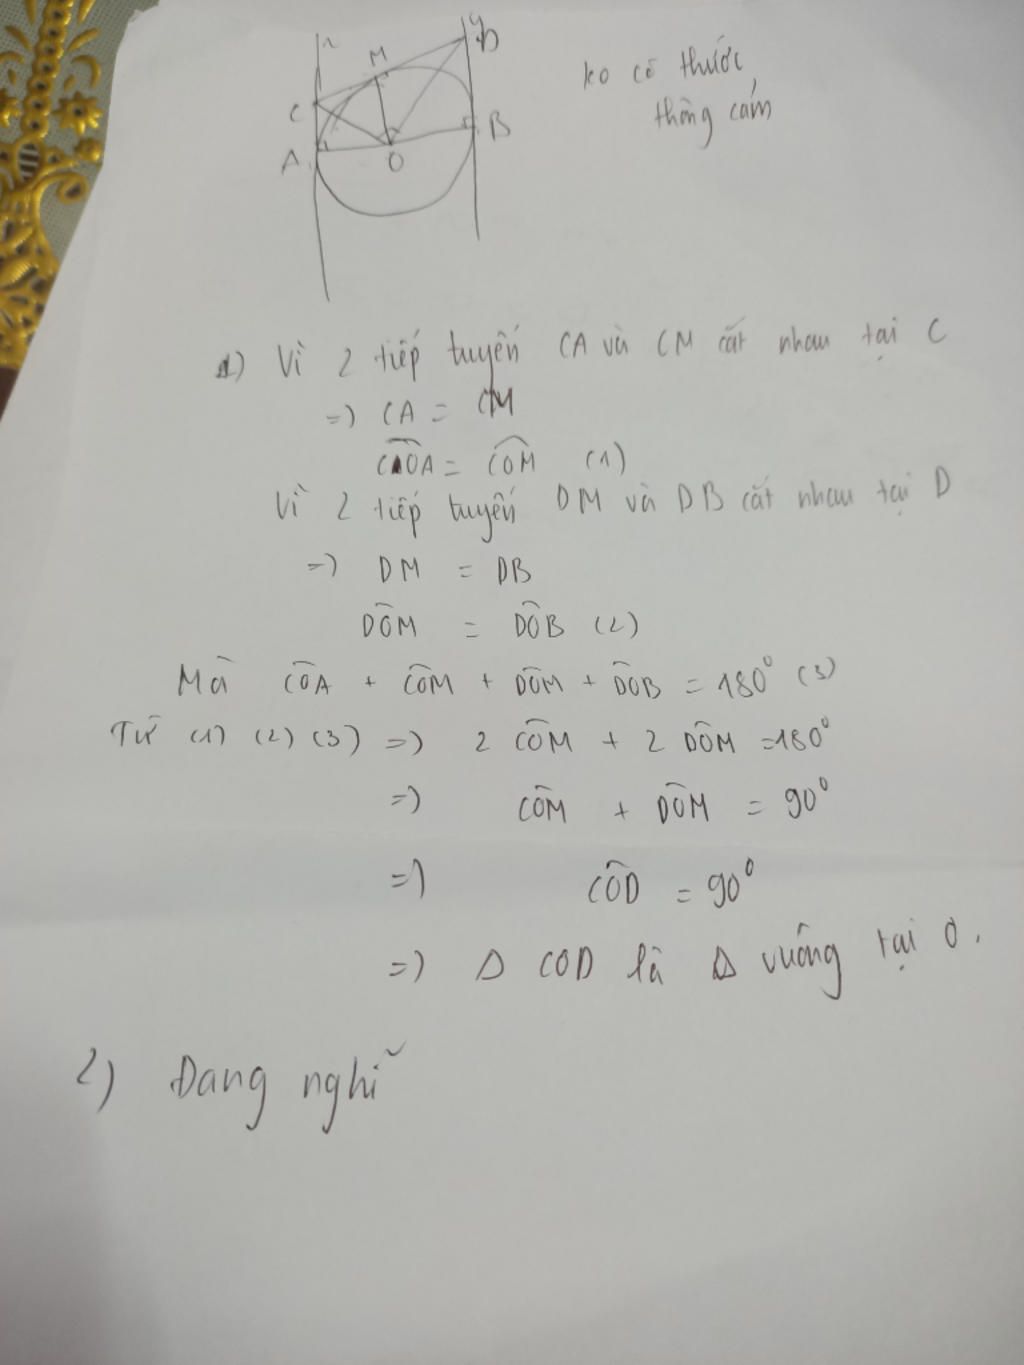 x
y
M
D
C
A
O
B
ko có thước
thông cảm
1) Vì 2 tiếp tuyến CA và CM cắt nhau tại C
=) CA = CM
COA = COM (1)
Vì 2 tiếp tuyến DM và DB cắt nhau tại D
=) DM = DB
DOM = DOB (2)
Mà COA + COM + DOM + DOB = 180° (3)
Từ (1) (2) (3) =) 2 COM + 2 DOM = 180°
=) COM + DOM = 90°
=) COD = 90°
=) Δ COD là Δ vuông tại O.
2) Đang nghĩ